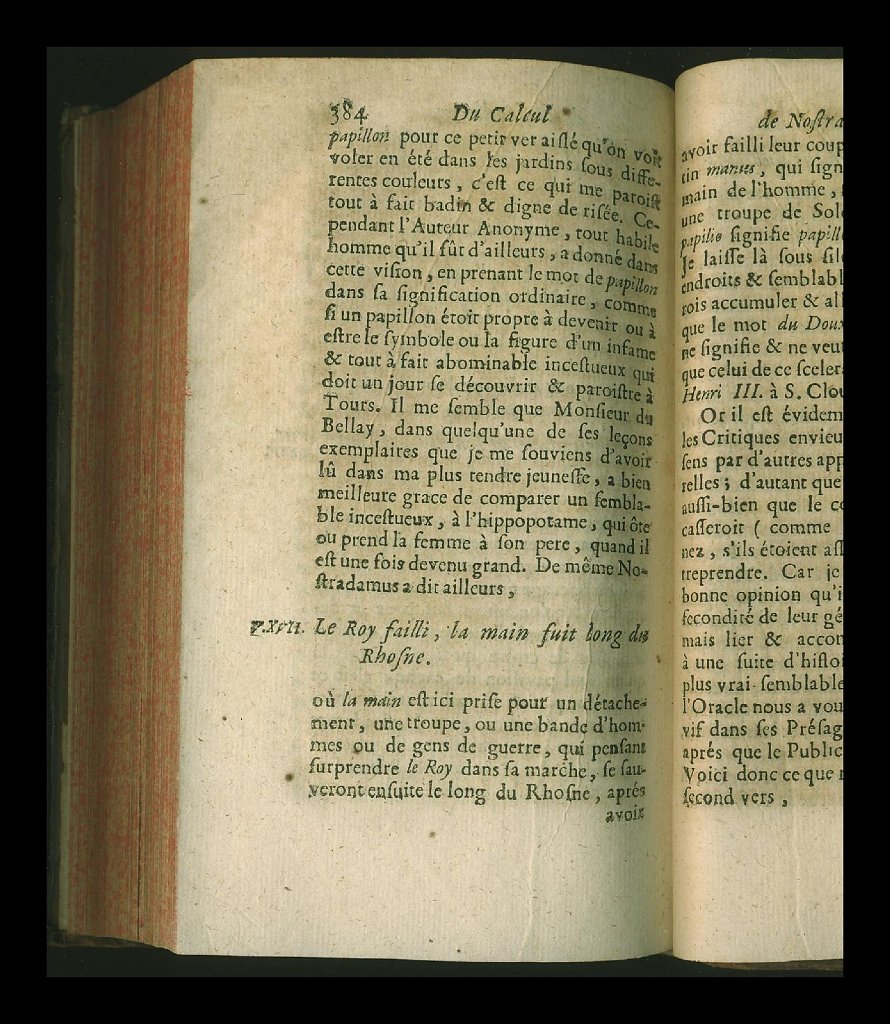 384 Du Calcul
papillon pour ce petit ver aiſlé qu'on voit
voler en été dans les jardins ſous diffe-
rentes couleurs, c'eſt ce qui me paroiſt
tout à fait badin & digne de riſée. Ce-
pendant l'Auteur Anonyme, tout habile
homme qu'il fût d'ailleurs, a donné dans
cette viſion, en prenant le mot de papillon
dans ſa ſignification ordinaire, comme
ſi un papillon étoit propre à devenir ou à
eſtre le ſymbole ou la figure d'un infame
& tout à fait abominable inceſtueux qui
doit un jour ſe découvrir & paroiſtre à
Tours. Il me ſemble que Monſieur du
Bellay, dans quelqu'une de ſes leçons
exemplaires que je me ſouviens d'avoir
lû dans ma plus tendre jeuneſſe, a bien
meilleure grace de comparer un ſembla-
ble inceſtueux, à l'hippopotame, qui ôte
ou prend la femme à ſon pere, quand il
eſt une fois devenu grand. De même No-
ſtradamus a dit ailleurs,
Le Roy failli, la main fuit long du
Rhoſne.
où la main eſt ici priſe pour un détache-
ment, une troupe, ou une bande d'hom-
mes ou de gens de guerre, qui penſant
ſurprendre le Roy dans ſa marche, ſe ſau-
veront enſuite le long du Rhoſne, aprés
avoir
de Noſtra
avoir failli leur coup
tin manus, qui ſign
main de l'homme,
une troupe de Sol
papilio ſignifie papill
Je laiſſe là ſous ſil
endroits & ſemblabl
rois accumuler & al
que le mot du Doux
ne ſignifie & ne veut
que celui de ce ſceler
Henri III. à S. Clou
Or il eſt évident
les Critiques envieu
ſens par d'autres app
relles; d'autant que
auſſi-bien que le c
caſſeroit (comme
nez, s'ils étoient aſſ
treprendre. Car je
bonne opinion qu'i
fecondité de leur gé
mais lier & accor
à une ſuite d'hiſtoi
plus vrai-ſemblable
l'Oracle nous a vou
vif dans ſes Préſag
aprés que le Public
Voici donc ce que
ſecond vers,